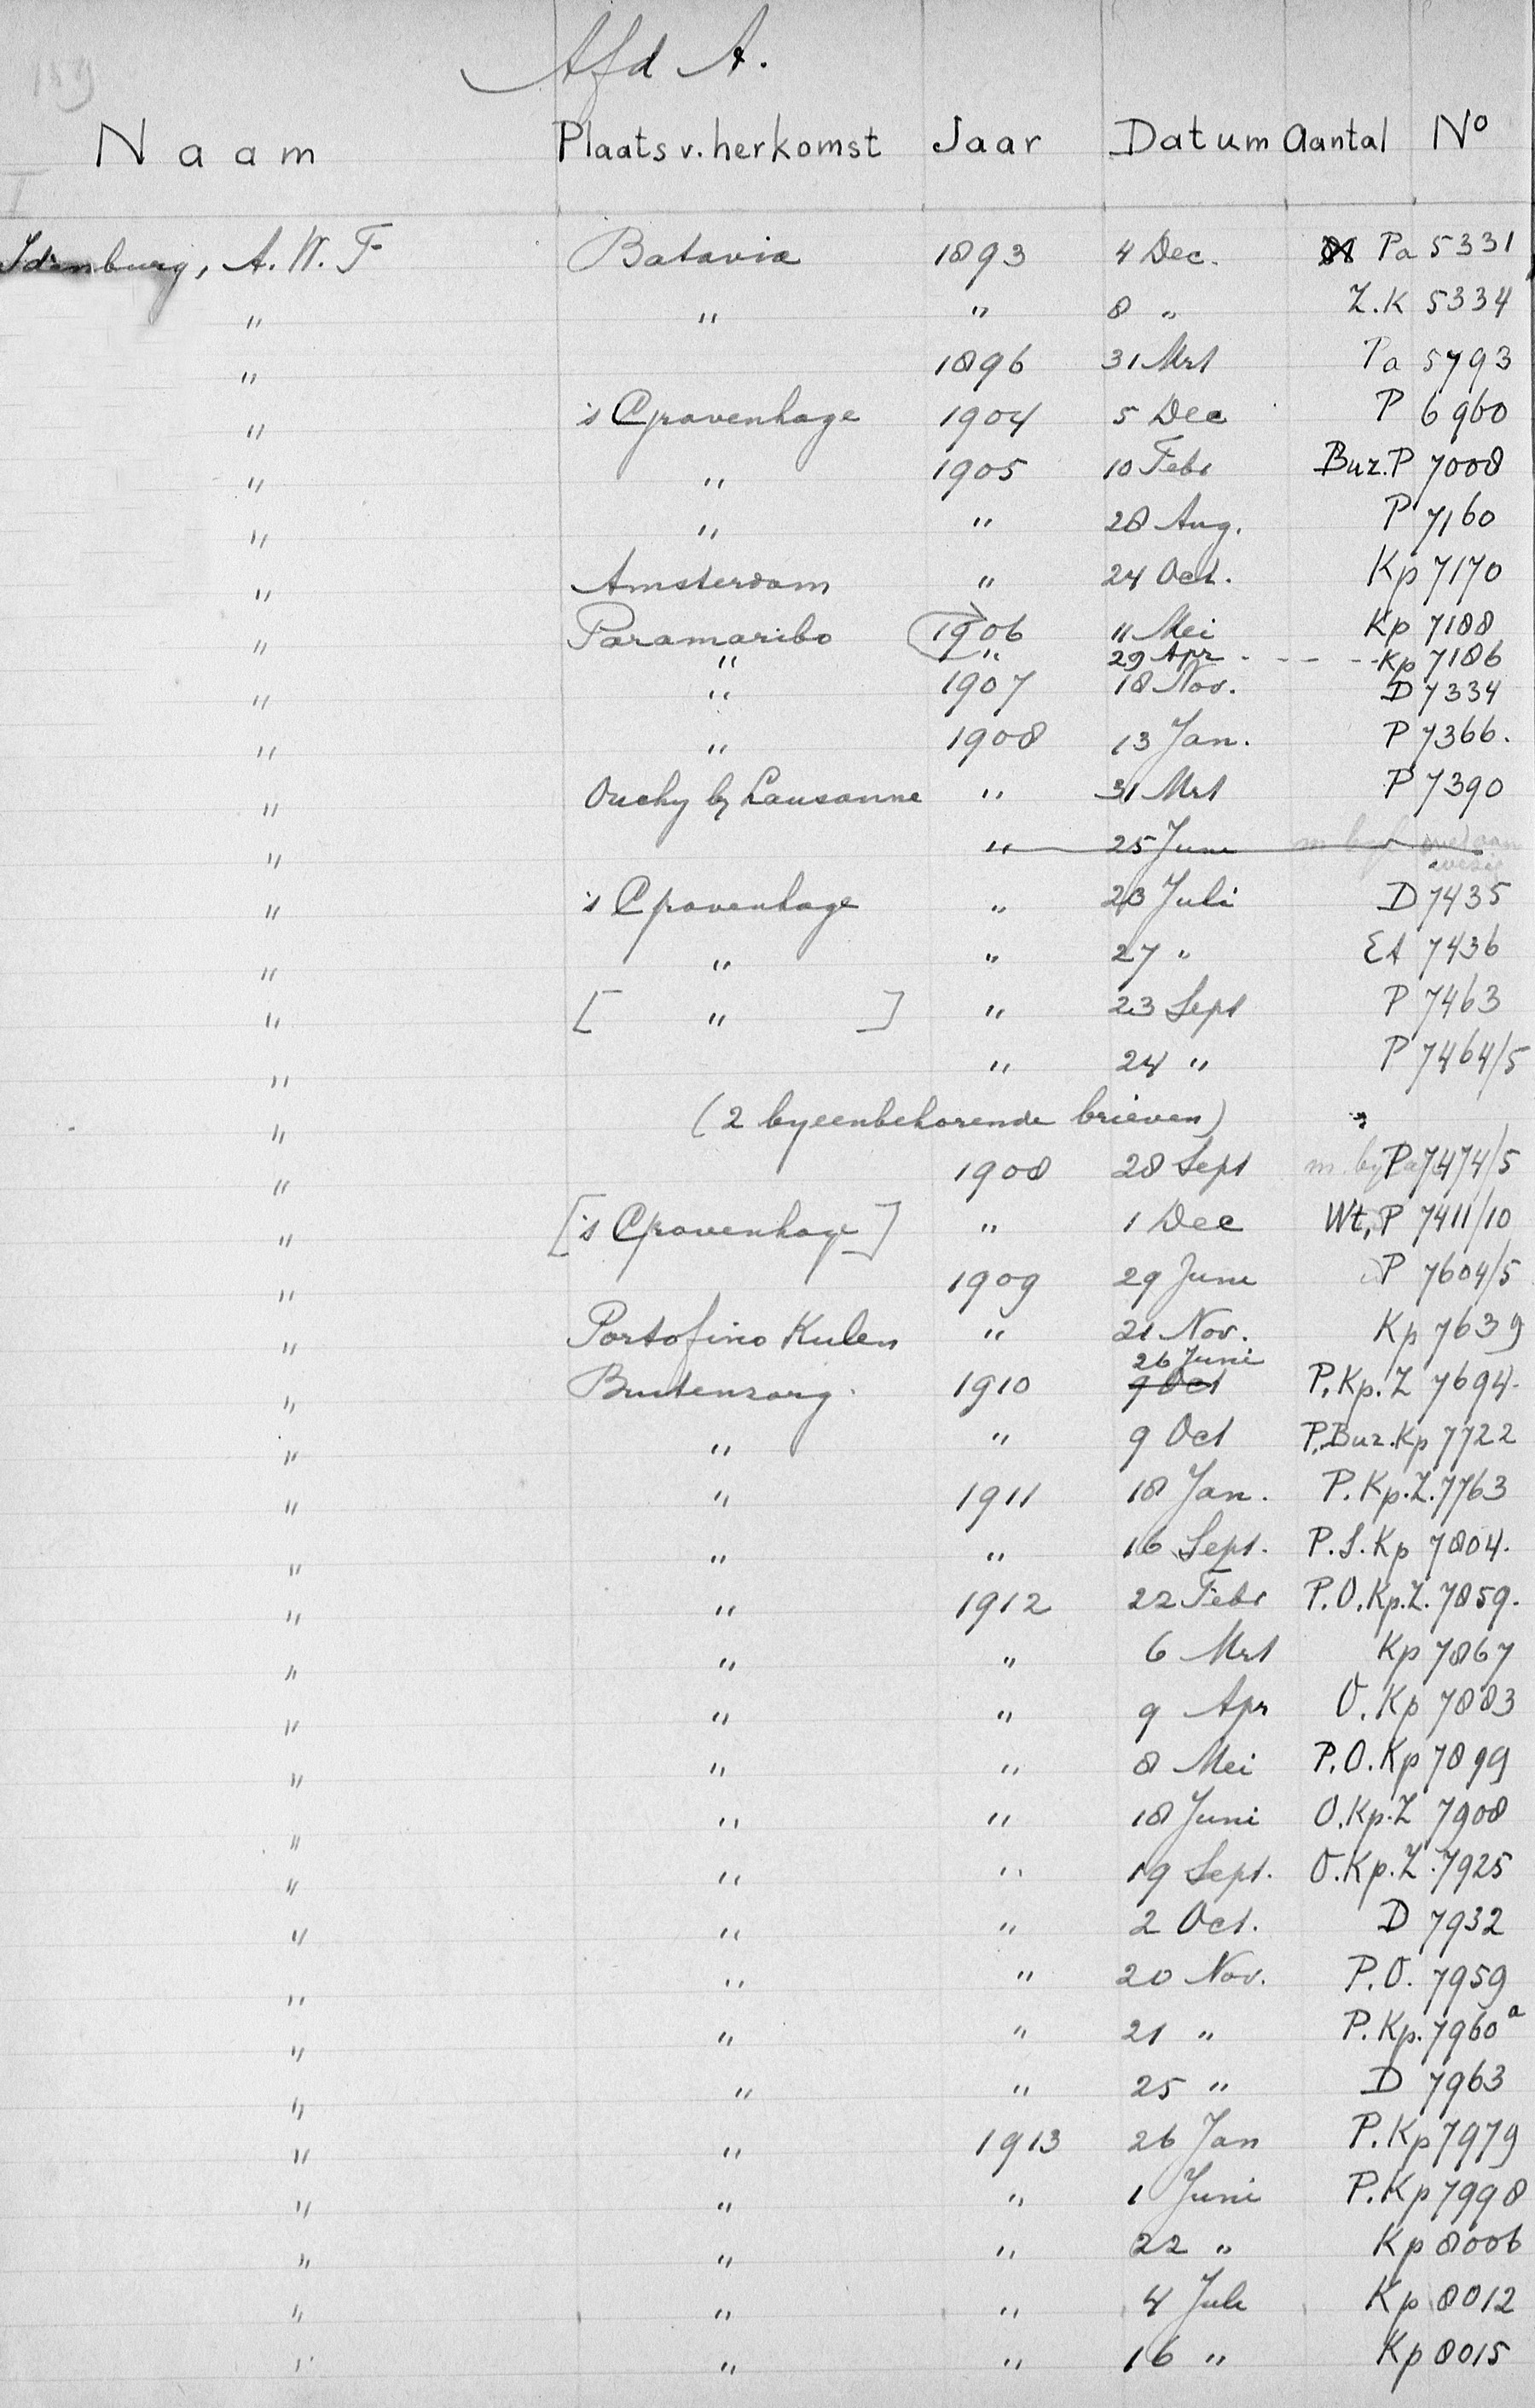 159
Afd A.
Naam Plaats v. herkomst Jaar Datum Aantal No
I
Idenburg, A. W. F Batavia 1893 4 Dec. Pa 5331
" " " 8 " Z.K 5334
" 1896 31 Mrt Pa 5793
" 's Gravenhage 1904 5 Dec P 6960
" " 1905 10 Febr Buz.P 7008
" " " 28 Aug. P 7160
" Amsterdam " 24 Oct. Kp 7170
" Paramaribo 1906 11 Mei Kp 7188
" " 29 Apr - - - - Kp 7186
" " 1907 18 Nov. D 7334
" " 1908 13 Jan. P 7366.
" Ouchy by Lausanne " 31 Mrt P 7390
" " 25 Juni
" 's Gravenhage " 23 Juli D 7435
" " " 27 " EA 7436
" [ " ] " 23 Sept P 7463
" " 24 " P 7464/5
" (2 byeenbehorende brieven)
" 1908 28 Sept P 7474/5
" ['s Gravenhage] " 1 Dec Wt, P 7411/10
" 1909 29 Juni P 7604/5
" Portofino Kulen " 21 Nov. Kp 7639
26 Juni
" Buitenzorg. 1910 9 Oct P, Kp. Z 7694.
" " " 9 Oct P, Buz. Kp 7722
" " 1911 18 Jan. P. Kp. Z. 7763
" " " 16 Sept. P. S. Kp 7804.
" " 1912 22 Febr P. O. Kp. Z. 7859.
" " " 6 Mrt Kp 7867
" " " 9 Apr O. Kp 7883
" " " 8 Mei P. O. Kp 7899
" " " 18 Juni O. Kp. Z 7908
" " " 19 Sept. O. Kp. Z. 7925
" " " 2 Oct. D 7932
" " " 20 Nov. P. O. 7959
" " " 21 " P. Kp. 7960a
" " " 25 " D 7963
" " 1913 26 Jan P. Kp 7979
" " " 1 Juni P. Kp 7998
" " " 22 " Kp 8006
" " " 4 Juli Kp 8012
" " " 16 " Kp 8015